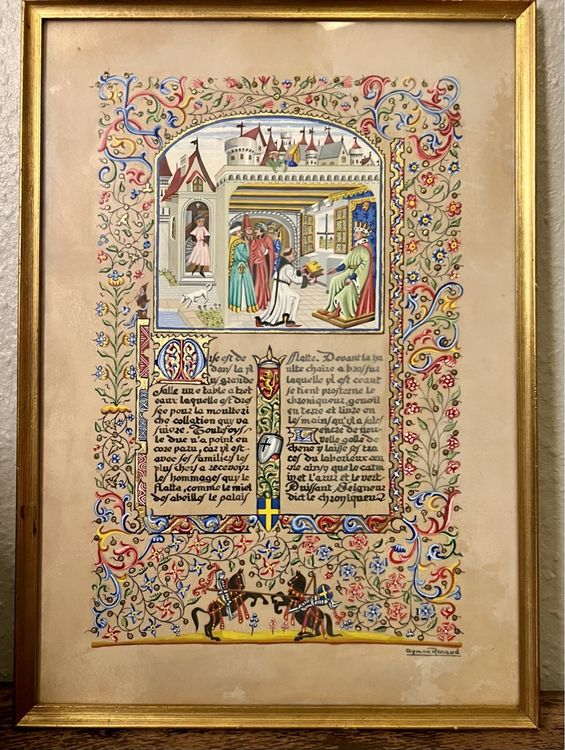 Mise est de
dans la pl
us grande
salle une table a tret
eaux laquelle est dres
see pour la moult ri
che collation quy va
suivre. Toutefoys
le duc n'a point en
core paru, car yl est
avec ses familiers les
plus chers a recevoyr
les hommages quy le
flatte, comme le miel
des abeilles le palais
flatte. Devant la ha
ulte chaire a bras sur
laquelle yl est ceant
se tient prosterne le
chroniqueur, genoil
en terre et livre en
les mains qu'yl a sales
L'encre de nou
velle galle de
chene y laisse ses tra
ces du laborieux
ainsy que le carm
in et l'azur et le vert.
Puissant Seigneur
dict le chroniqueur
Aymon Renaud